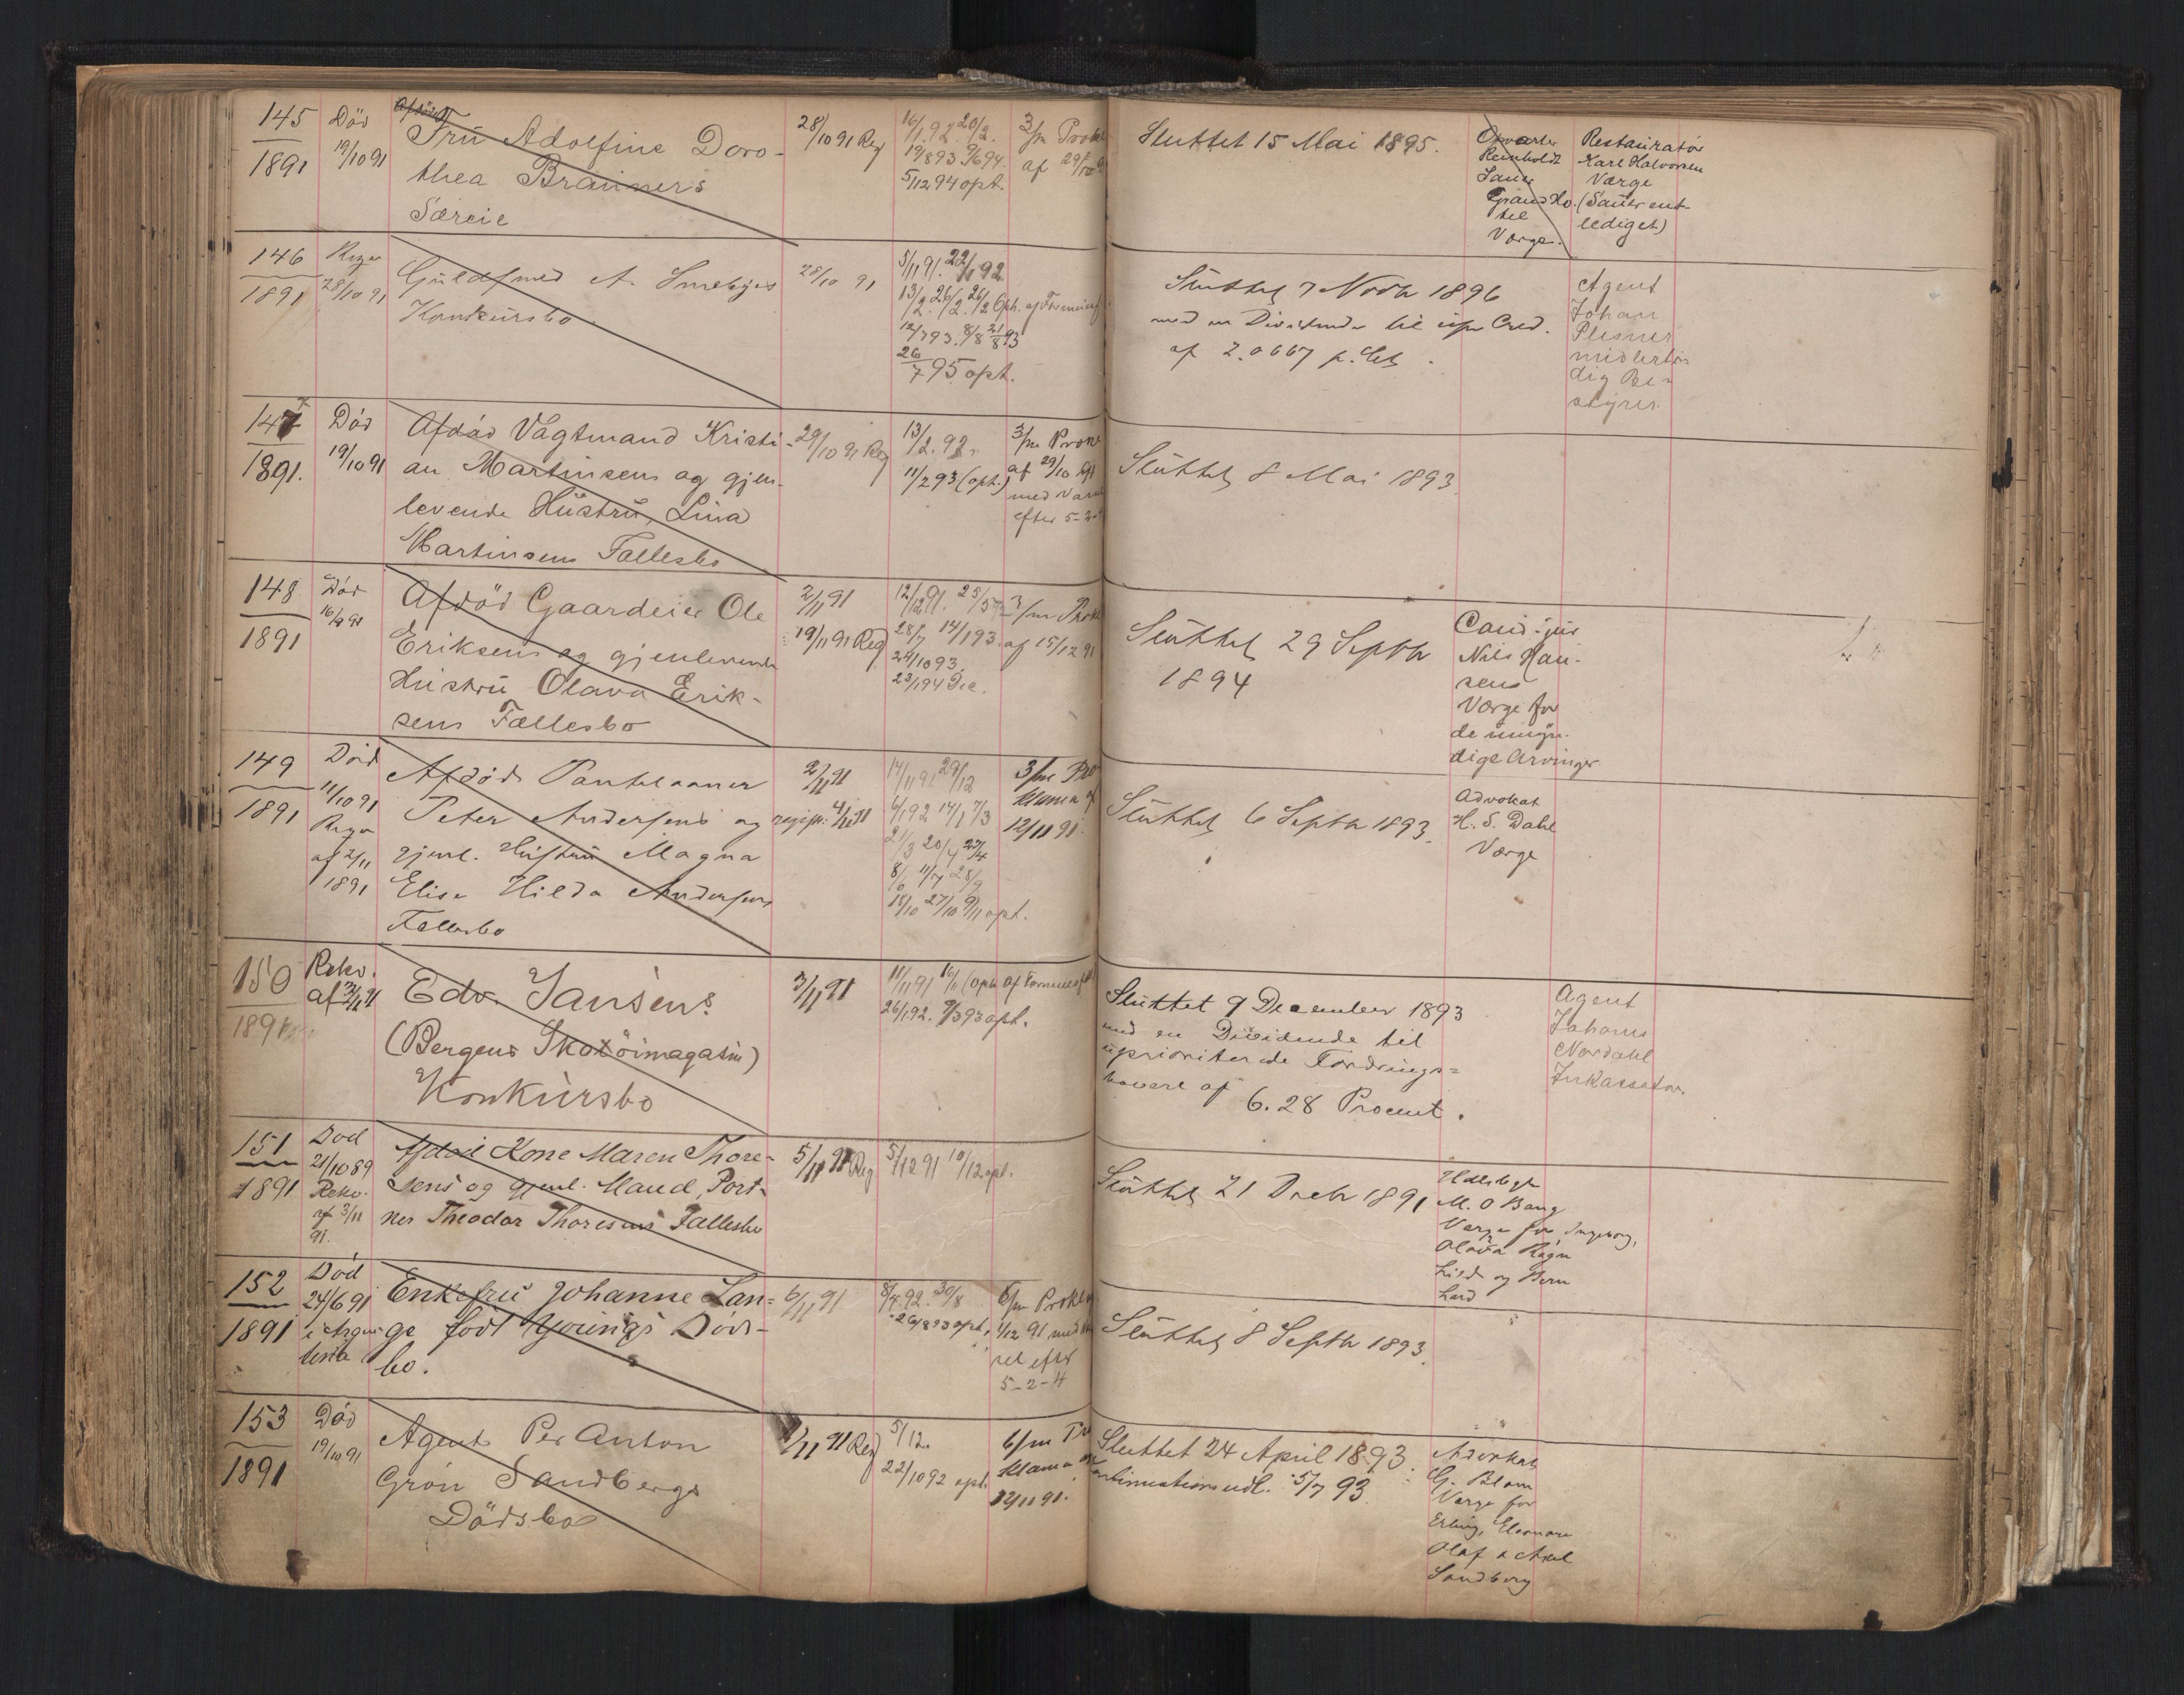 145
1891
Död
19/10 91
Afdöde
Fru Adolfine Doro-
thea Brauners
Særeie
28/10 91 Reg
16/1 92 20/2.
19893 9/6 94.
5/12 94 opt.
3/m Prokl
af 29/10 91
Sluttet 15 Mai 1895.
Opvarter
Reinholdt
Sauer
Grand Ho.
til
Værge.
Restauratör
Karl Halvorsen
Værge
(Sauer ent-
lediget)
146
1891
28/10 91
Guldsmed A. Smebyes
Konkursbo
28/10 91
5/11 91. 22/1 92
13/2. 26/2. 26/2
12/7 93. 8/8 21/8 93
26/7 95 opt.
Sluttet 7 Novbr 1896
med en Dividende til upr Cred.
af 2.0667 p. Ct.
Agent
Johan
Plesner
midlerti-
dig Be-
styrer
147
1891.
Död
19/10 91
Afdöd Vagtmand Kristi-
an Martinsens og gjen-
levende Hustru, Lina
Martinsens Fællesbo
29/10 91 Reg
13/2. 92.
11/2 93 (opt.)
3/m Prokl
af 29/10 91
med Varsel
efter 5-2-4
Sluttet 8 Mai 1893.
148
1891
Död
16/9 91
Afdöd Gaardeier Ole
Eriksens og gjenlevende
Hustru Olava Erik-
sens Fællesbo
2/11 91
19/11 91 Reg
12/12 91. 25/5
28/7 14/1 93.
24/10 93.
23/1 94 Dec.
3/m Prokl
af 15/12 91
Sluttet 29 Septbr
1894
Cand. jur
Nils Han-
sens
Værge for
de umyn-
dige Arvinger
149
1891
Död
11/10 91
af 2/11
1891
Afdöd Pantelaaner
Peter Andersens og
gjenl. Hustru Magna
Elise Hilda Andersens
Fællesbo
2/11 91
regist. 4/11 91
14/11 91 29/12
6/1 92 14/1 7/3
21/3 20/4 27/4
8/6 11/7 28/9
18/10 27/10 9/11 opt.
3/m Pro
klama af
12/11 91.
Sluttet 6 Septbr 1893.
Advokat
H. S. Dahl
Værge
150
1891
Rekv.
Edv. Jansens
(Bergens Skotöimagasin)
Konkursbo
3/11 91
11/11 91
26/1 92. 9/3 93 opt.
Sluttet 9 December 1893
med en Dividende til
uprioriterede Fordrings=
havere af
6.28 Procent.
Agent
Johans
Nordahl
Inkassator.
151
1891
Död
21/10 89
Rekv.
af 3/11
91.
Afdöd Kone Maren Thore-
sens og gjenl. Mand, Port-
ner Theodor Thoresens Fællesbo
5/11 91 Reg
5/12 91 10/12 opt.
Sluttet 21 Decbr 1891
M. O Bang
Værge for Ingeborg,
Olava Ragn
hild og Bern
hard
152
1891
Död
24/6 91
i Argen-
tinia
Enkefru Johanne Lan-
ge född Youngs Döds-
bo.
6/11 91
8/4. 92. 30/8
26/8 93 opt.
6/m Prokla
1/12 91 med Var
sel efter
5-2-4
Sluttet 8 Septbr 1893.
153
1891
Död
19/10 91
Agent Per Anton
Grön Sandbergs
Dödsbo
91 Reg
5/12.
22/10 92 opt.
6/m Pro
klama af
12/11 91.
Sluttet 24 April 1893.
5/7 93
Advokat
G. Blom
Værge for
Erling, Eleonore
Olaf
Sandberg